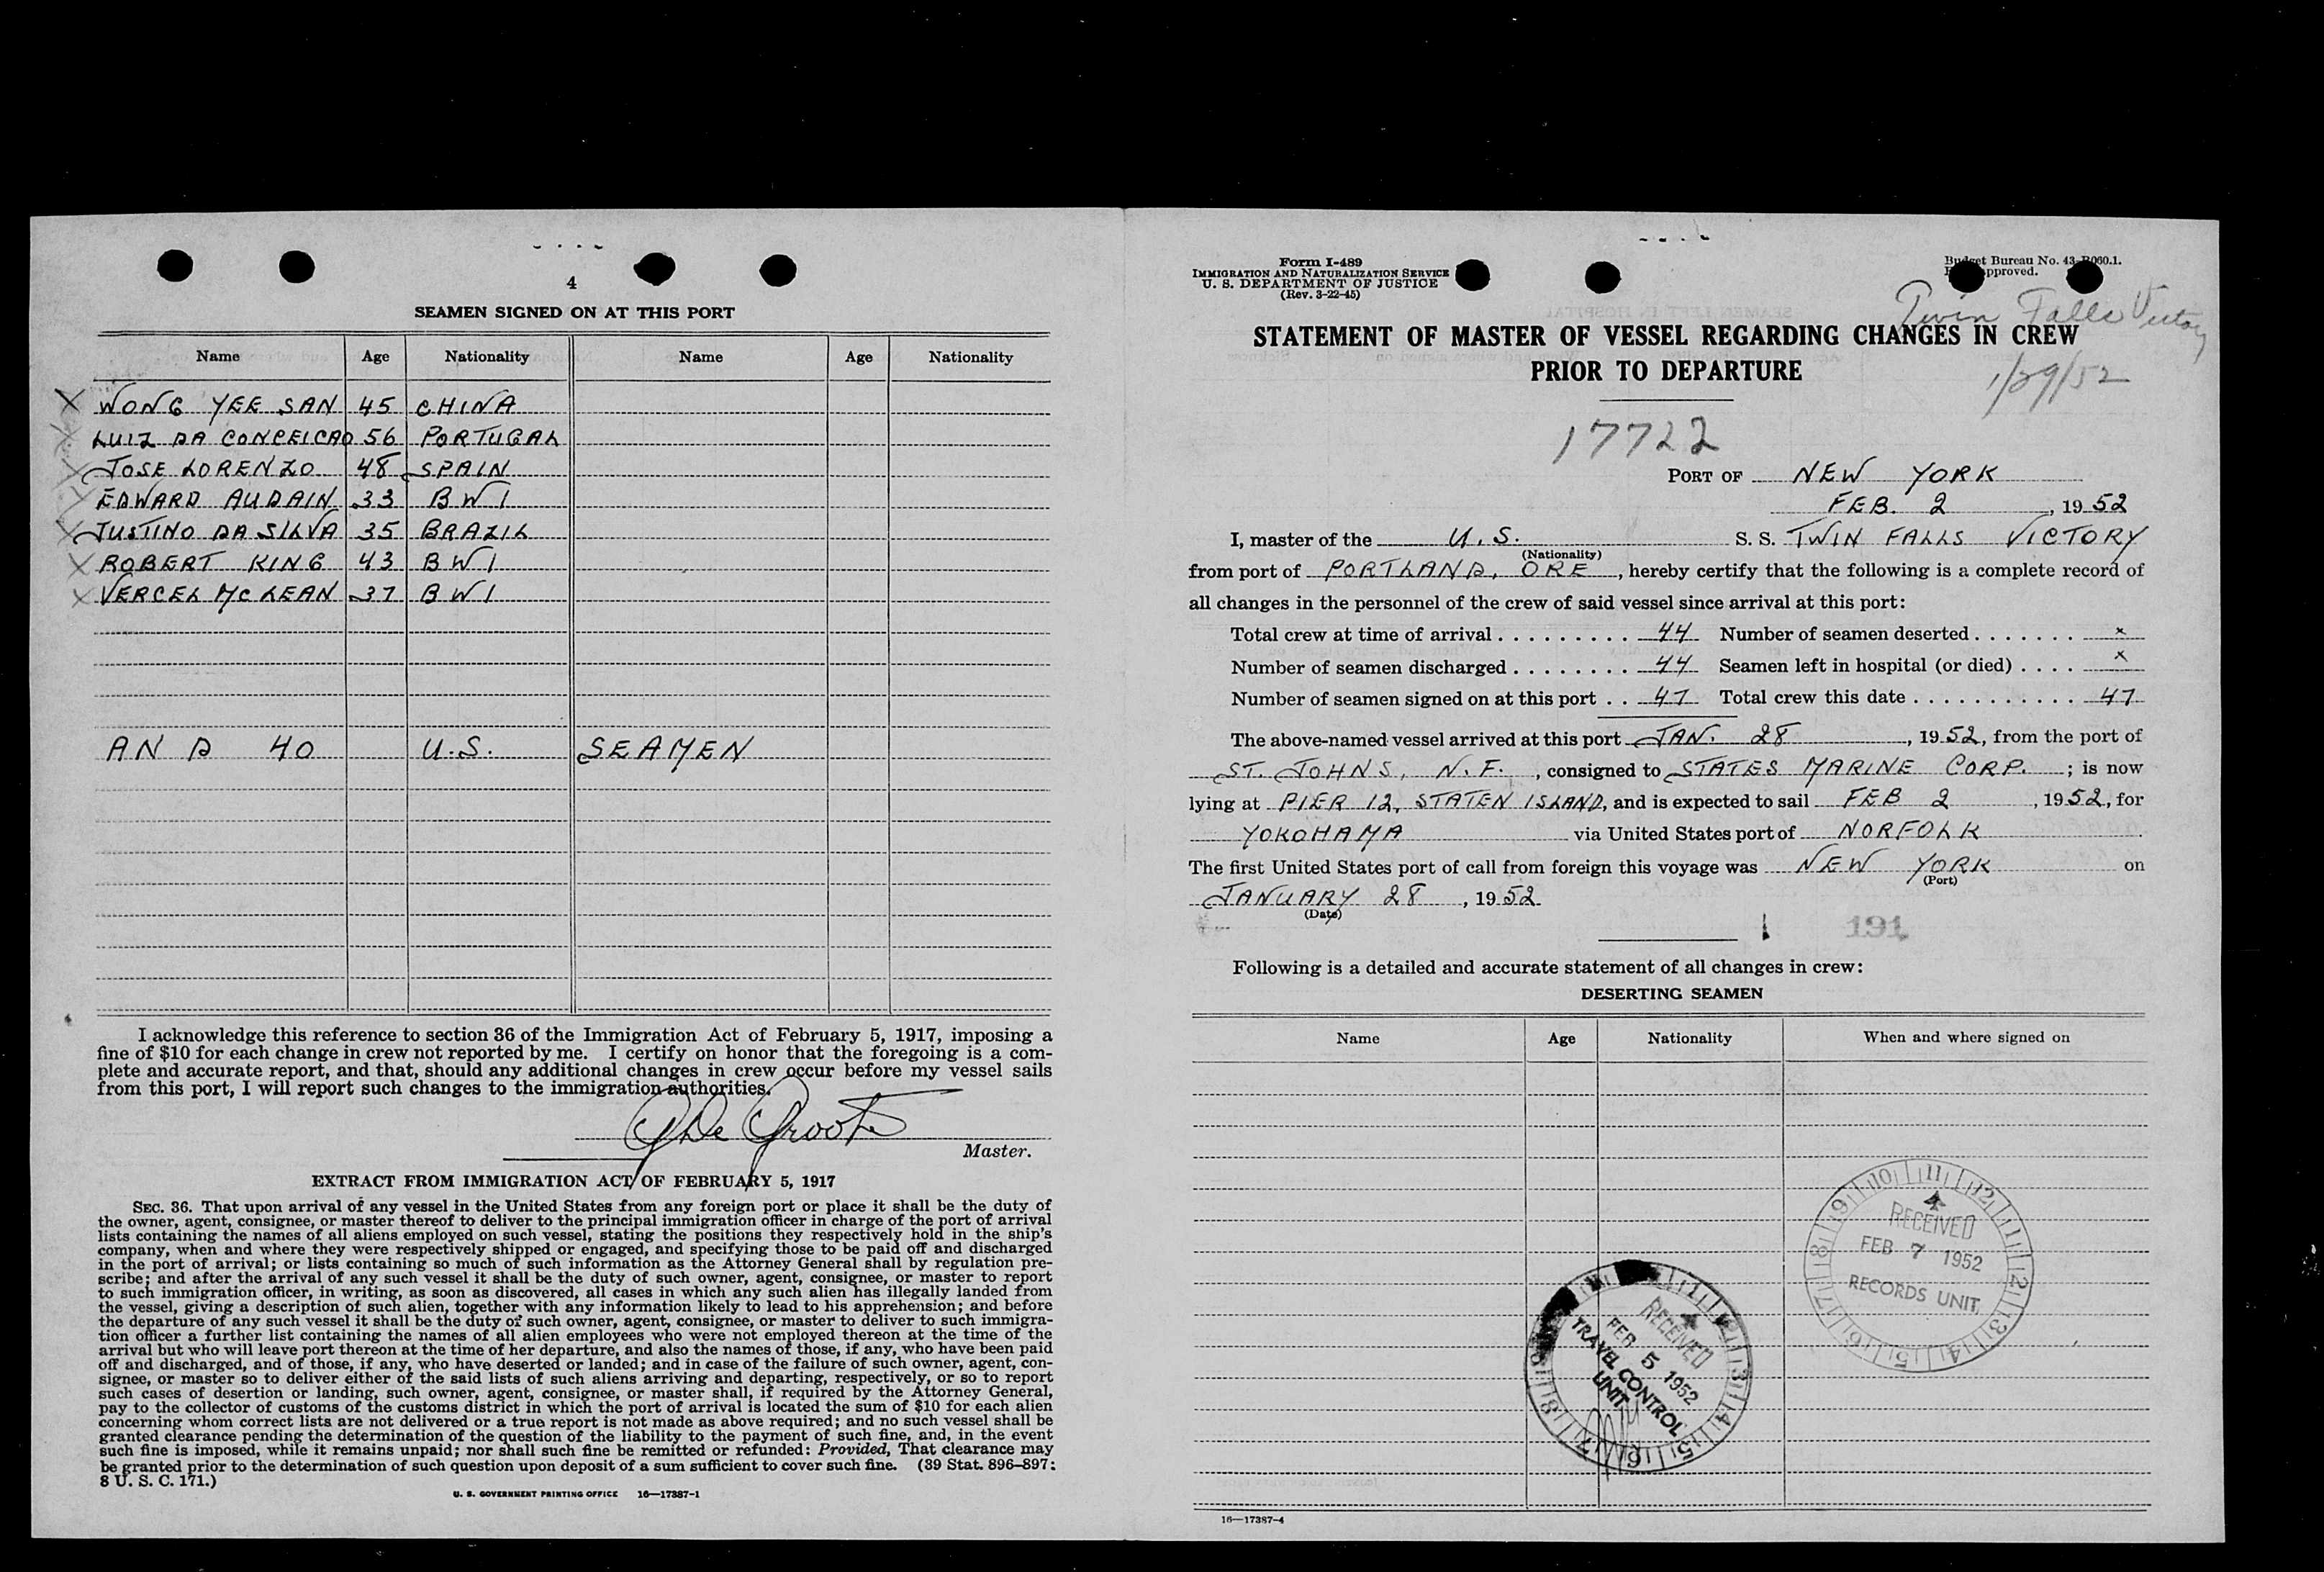 4
SEAMEN SIGNED ON AT THIS PORT
Name Age Nationality Name Age Nationality
X WONG YEE SAN 45 CHINA
X LUIZ DA CONCEICAO 56 PORTUGAL
X JOSE LORENZO 48 SPAIN
X EDWARD AUDAIN 33 B W I
X JUSTINO DA SILVA 35 BRAZIL
X ROBERT KING 43 B W I
X VERCEL McLEAN 37 B W I
AND 40 U.S. SEAMEN
I acknowledge this reference to section 36 of the Immigration Act of February 5, 1917, imposing a
fine of $10 for each change in crew not reported by me. I certify on honor that the foregoing is a com-
plete and accurate report, and that, should any additional changes in crew occur before my vessel sails
from this port, I will report such changes to the immigration authorities.
De Groot
Master.
EXTRACT FROM IMMIGRATION ACT OF FEBRUARY 5, 1917
SEC. 36. That upon arrival of any vessel in the United States from any foreign port or place it shall be the duty of
the owner, agent, consignee, or master thereof to deliver to the principal immigration officer in charge of the port of arrival
lists containing the names of all aliens employed on such vessel, stating the positions they respectively hold in the ship's
company, when and where they were respectively shipped or engaged, and specifying those to be paid off and discharged
in the port of arrival; or lists containing so much of such information as the Attorney General shall by regulation pre-
scribe; and after the arrival of any such vessel it shall be the duty of such owner, agent, consignee, or master to report
to such immigration officer, in writing, as soon as discovered, all cases in which any such alien has illegally landed from
the vessel, giving a description of such alien, together with any information likely to lead to his apprehension; and before
the departure of any such vessel it shall be the duty of such owner, agent, consignee, or master to deliver to such immigra-
tion officer a further list containing the names of all alien employees who were not employed thereon at the time of the
arrival but who will leave port thereon at the time of her departure, and also the names of those, if any, who have been paid
off and discharged, and of those, if any, who have deserted or landed; and in case of the failure of such owner, agent, con-
signee, or master so to deliver either of the said lists of such aliens arriving and departing, respectively, or so to report
such cases of desertion or landing, such owner, agent, consignee, or master shall, if required by the Attorney General,
pay to the collector of customs of the customs district in which the port of arrival is located the sum of $10 for each alien
concerning whom correct lists are not delivered or a true report is not made as above required; and no such vessel shall be
granted clearance pending the determination of the question of the liability to the payment of such fine, and, in the event
such fine is imposed, while it remains unpaid; nor shall such fine be remitted or refunded: Provided, That clearance may
be granted prior to the determination of such question upon deposit of a sum sufficient to cover such fine. (39 Stat. 896–897;
8 U. S. C. 171.)
U. S. GOVERNMENT PRINTING OFFICE 16—17387-1
Form I-489
IMMIGRATION AND NATURALIZATION SERVICE
U. S. DEPARTMENT OF JUSTICE
(Rev. 3-22-45)
Budget Bureau No. 43-R060.1.
approved.
Twin Falls Victory
1/29/52
STATEMENT OF MASTER OF VESSEL REGARDING CHANGES IN CREW
PRIOR TO DEPARTURE
17722
PORT OF NEW YORK
FEB. 2, 1952
I, master of the U.S. S. S. TWIN FALLS VICTORY
(Nationality)
from port of PORTLAND, ORE, hereby certify that the following is a complete record of
all changes in the personnel of the crew of said vessel since arrival at this port:
Total crew at time of arrival . . . . . . . . . 44 Number of seamen deserted . . . . . . . x
Number of seamen discharged . . . . . . . . 44 Seamen left in hospital (or died) . . . . x
Number of seamen signed on at this port . . 47 Total crew this date . . . . . . . . . . . . 47
The above-named vessel arrived at this port JAN. 28, 1952, from the port of
ST. JOHNS, N.F., consigned to STATES MARINE CORP.; is now
lying at PIER 12, STATEN ISLAND, and is expected to sail FEB 2, 1952, for
YOKOHAMA via United States port of NORFOLK
The first United States port of call from foreign this voyage was NEW YORK on
(Port)
JANUARY 28, 1952
(Date)
191
Following is a detailed and accurate statement of all changes in crew:
DESERTING SEAMEN
Name Age Nationality When and where signed on
RECEIVED
FEB 7 1952
RECORDS UNIT
RECEIVED
FEB 5 1952
TRAVEL CONTROL
UNIT
16—17387-4